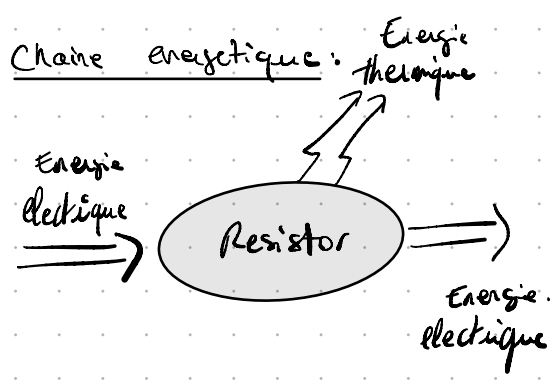 Chaine energetique :
Energie
thermique
Energie
électique
Resistor
Energie.
electrique